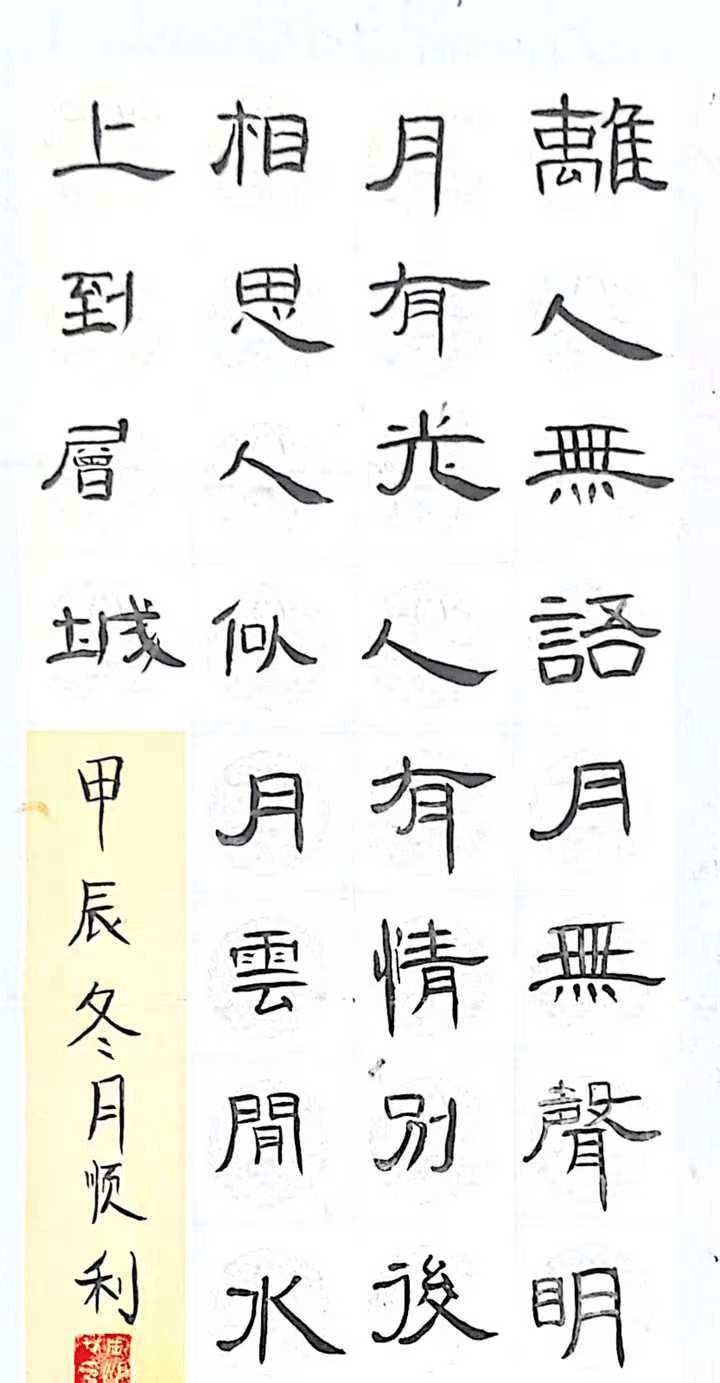 離人無語月無聲明
月有光人有情別後
相思人似月雲間水
上到層城
甲辰冬月顺利